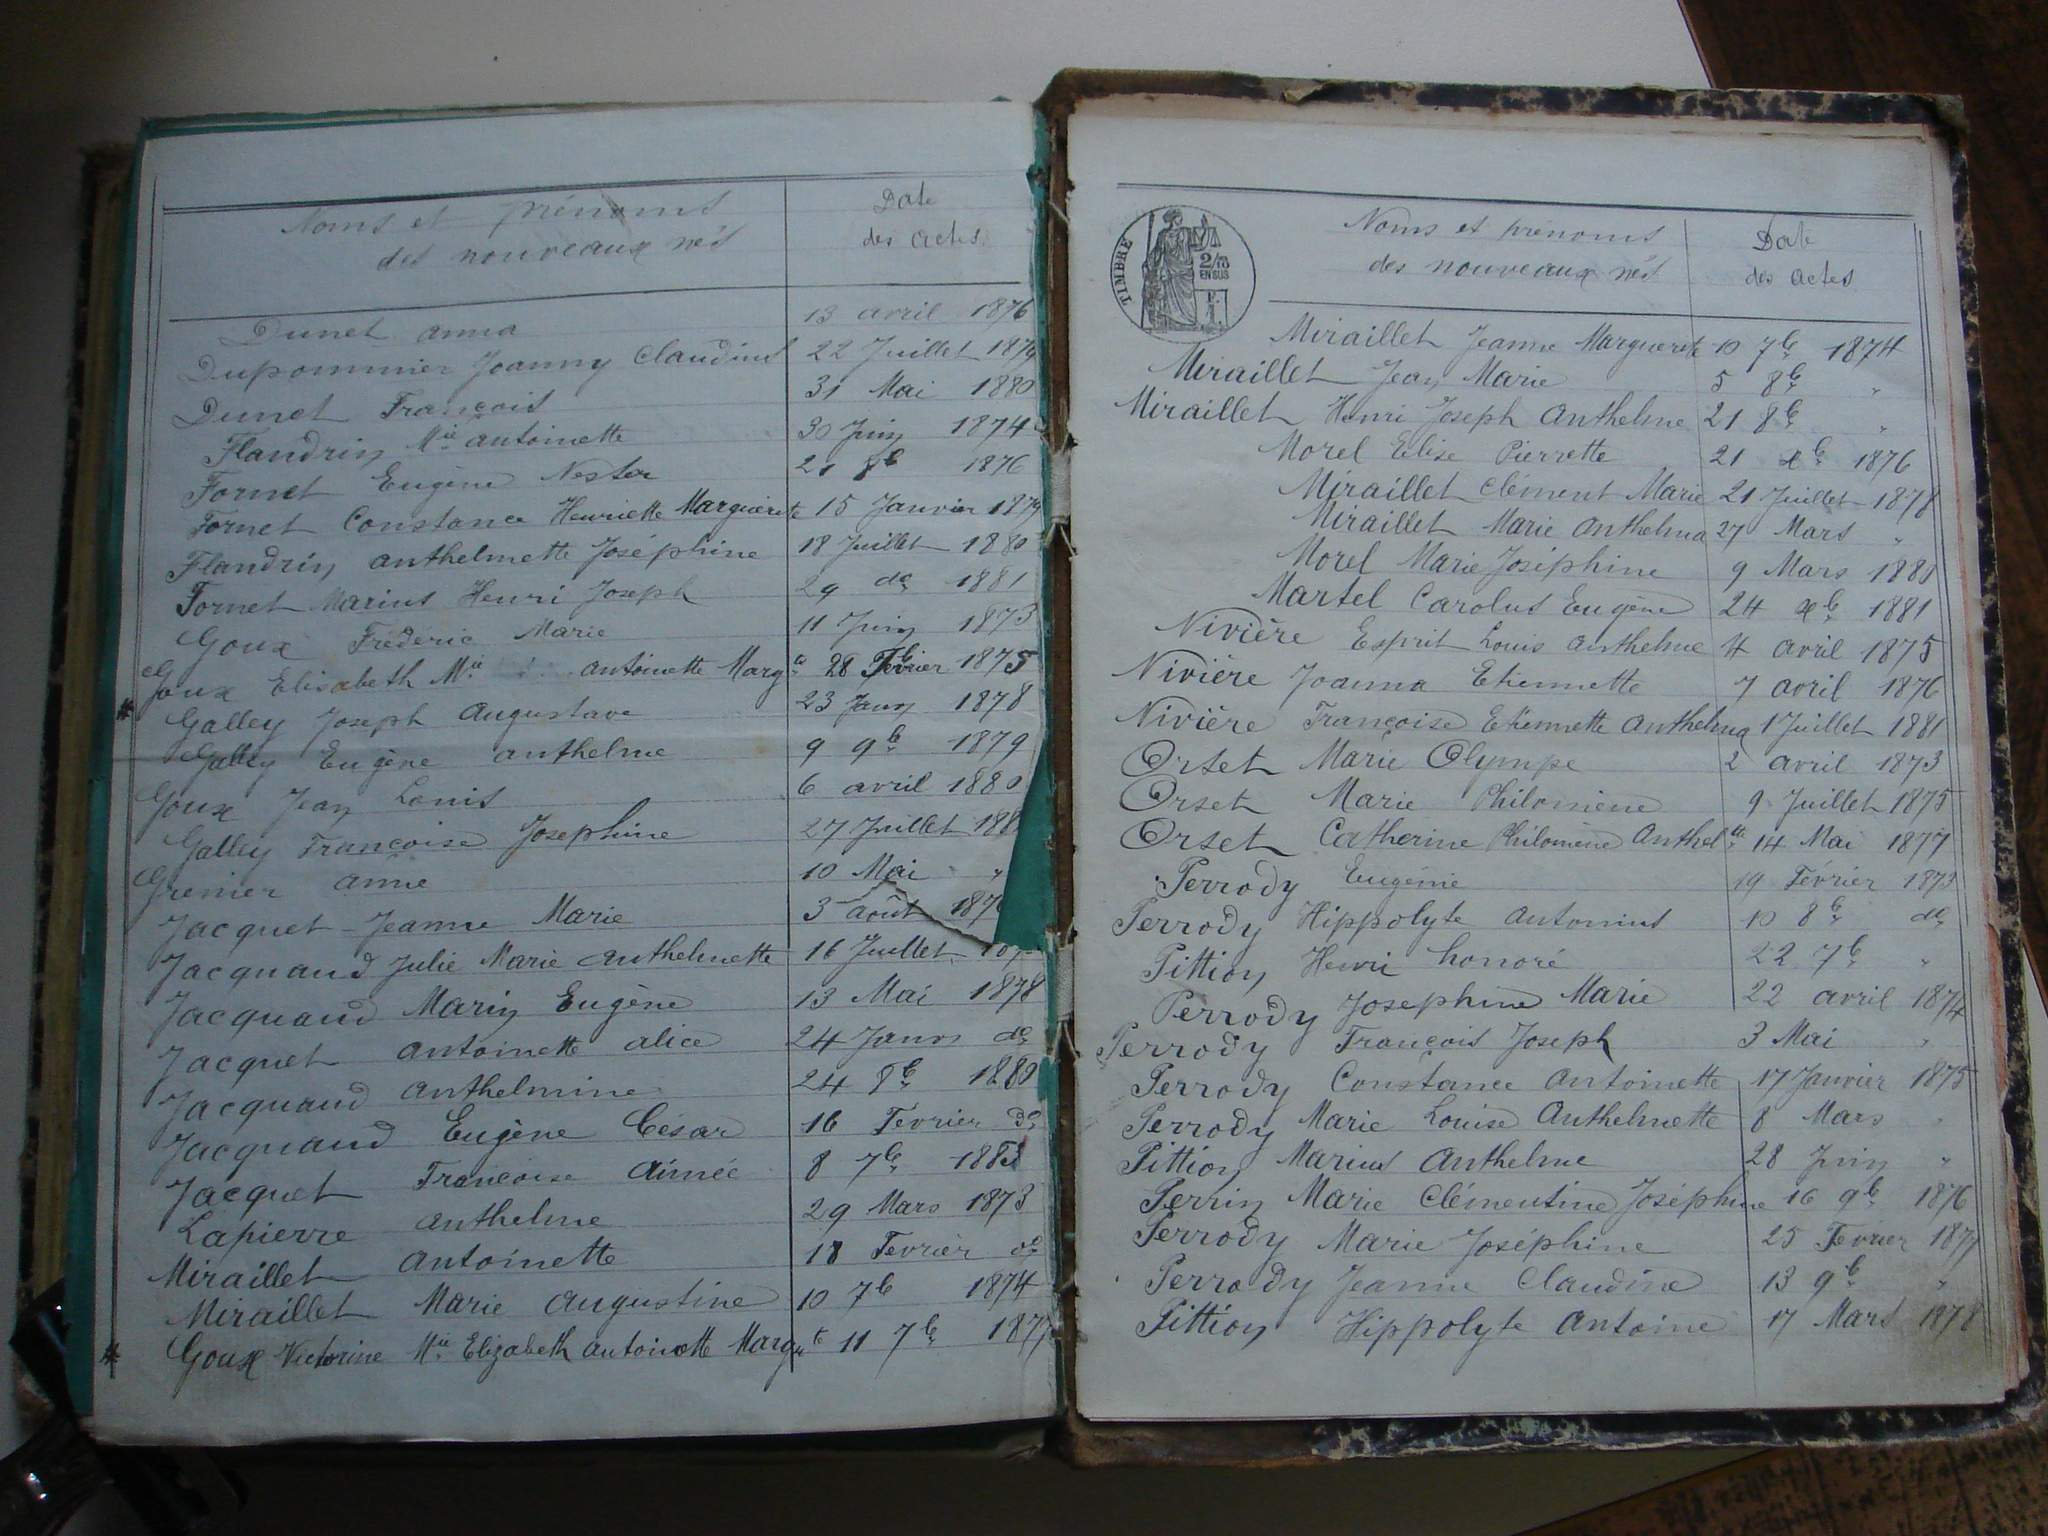 Noms et prénoms
des nouveaux nés
Date
des actes
Dunet anna 13 avril 1876
Dupommier Joanny Claudius 22 Juillet 1879
Dunet François 31 Mai 1880
Flandrin Mie antoinette 30 Juin 1874
Fornet Eugène Nestor 21 8b 1876
Fornet Constance Henriette Marguerite 15 Janvier 1879
Flandrin anthelmette Joséphine 18 Juillet 1880
Fornet Marius Henri Joseph 29 do 1881
Goux Frédéric Marie 11 Juin 1873
Goux Elisabeth Mie antoinette Margte 28 Février 1875
* Galley Joseph Augustave 23 Janv 1878
Galley Eugène anthelme 9 9b 1879
Goux Jean Louis 6 avril 1880
Galley Françoise Josephine 27 Juillet
Grenier anne 10 Mai "
Jacquet Jeanne Marie 3 août
Jacquand Julie Marie Anthelmette 16 Juillet
Jacquand Marin Eugène 13 Mai 1878
Jacquet antoinette alice 24 Janvr do
Jacquand anthelmine 24 8b 1880
Jacquand Eugène César 16 Février do
Jacquet Françoise Aimée 8 7b
Lapierre anthelme 29 Mars 1873
Miraillet antoinette 18 Février do
Miraillet Marie augustine 10 7b 1874
* Goux Victorine Mie Elizabeth antoinette Margte 11 7b 1877
TIMBRE
2/10
EN SUS
Noms et prénoms
des nouveaux nés
Date
des actes
Miraillet Jeanne Marguerite 10 7b 1874
Miraillet Jean Marie 5 8b "
Miraillet Henri Joseph Anthelme 21 8b "
Morel Elise Pierrette 21 xb 1876
Miraillet Clément Marie 21 Juillet 1878
Miraillet Marie anthelma 27 Mars "
Morel Marie Joséphine 9 Mars 1880
Martel Carolus Eugène 24 xb 1881
Nivière Esprit Louis anthelme 4 avril 1875
Nivière Joanna Etiennette 7 avril 1876
Nivière Françoise Etiennette Anthelma 1 Juillet 1881
Orset Marie Olympe 2 avril 1873
Orset Marie Philomène 9 Juillet 1875
Orset Catherine Philomène Anthelte 14 Mai 1877
Perrody Eugénie 19 Février 1873
Perrody Hippolyte Antonius 10 8b do
Pittion Henri honoré 22 7b "
Perrody Josephine Marie 22 avril 1874
Perrody François Joseph 3 Mai "
Perrody Constance Antoinette 17 Janvier 1875
Perrody Marie Louise Anthelmette 8 Mars "
Pittion Marius Anthelme 28 Juin "
Perrin Marie Clémentine Joséphine 16 9b 1876
Perrody Marie Joséphine 25 Fevrier 1877
Perrody Jeanne Claudine 13 9b "
Pittion Hippolyte Antoine 17 Mars 1878